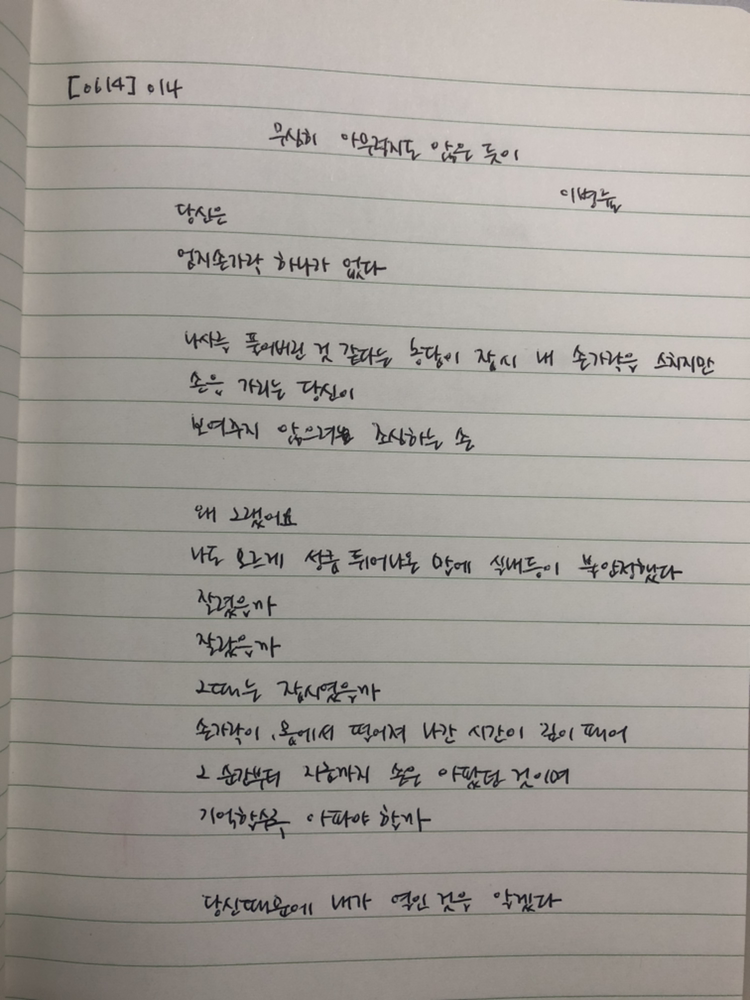 [0614] 014
무심히 아무렇지도 않은 듯이
이병률
당신은
엄지손가락 하나가 없다
나사를 풀어버린 것 같다는 농담이 잠시 내 손가락을 스치지만
손을 가리는 당신이
보여주지 않으려 조심하는 손
왜 그랬어요
나도 모르게 성큼 튀어나온 말에 실내등이 불안정했다
잘렸을까
잘랐을까
그때는 잠시였을까
손가락이 몸에서 떨어져 나간 시간이 깊이 패어
그 순간부터 자초까지 손은 아팠던 것이며
기억할수록 아파야 할까
당신때문에 내가 엮인 것을 알겠다